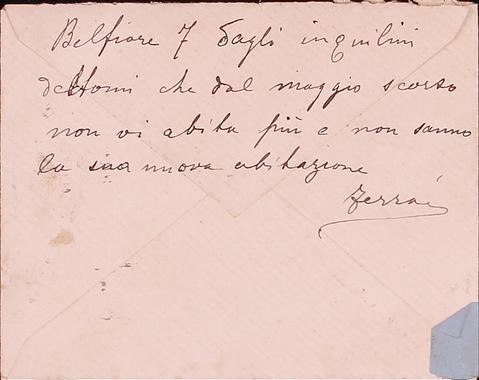 Belfiore 7 Dagli inquilini
dettomi che dal maggio scorso
non vi abita più e non sanno
la sua nuova abitazione